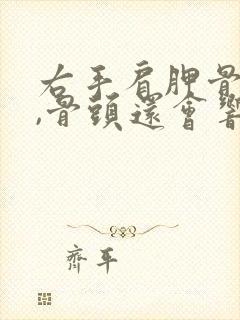 右手肩胛骨
,骨頭還會響
齊平